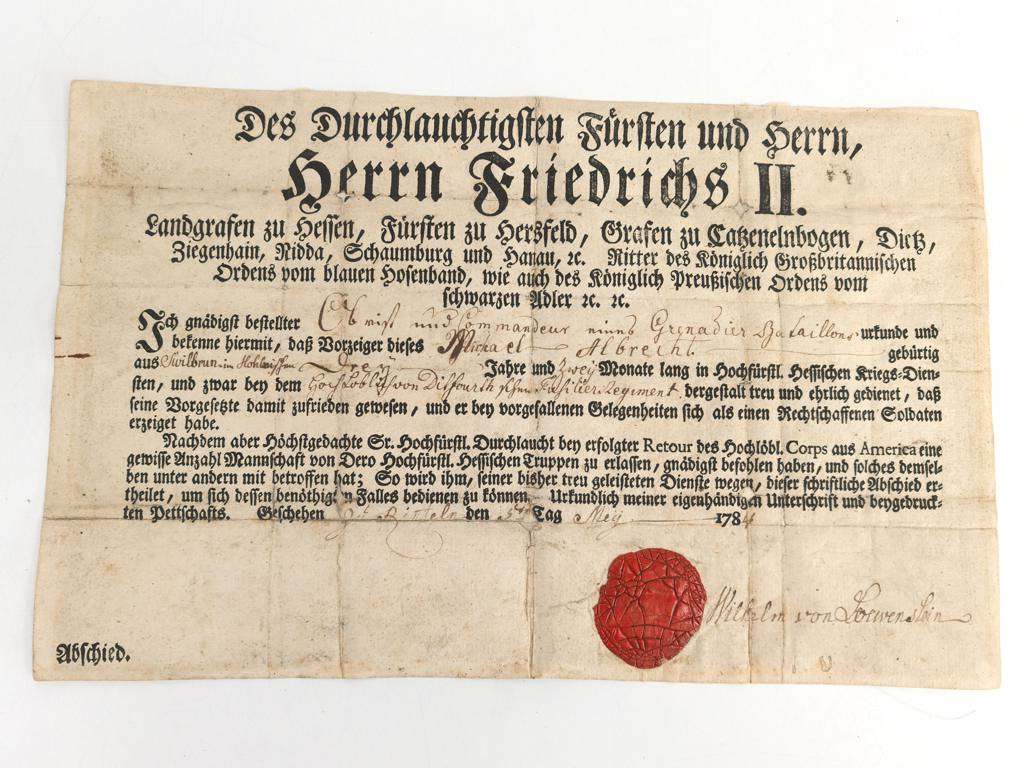 Des Durchlauchtigsten Fürsten und Herrn,
Herrn Friedrichs II.
Landgrafen zu Hessen, Fürsten zu Hersfeld, Grafen zu Catzenelnbogen, Dietz,
Ziegenhain, Nidda, Schaumburg und Hanau, ꝛc. Ritter des Königlich Großbritannischen
Ordens vom blauen Hosenband, wie auch des Königlich Preußischen Ordens vom
schwarzen Adler ꝛc. ꝛc.
Ich gnädigst bestellter Obrist und Commandeur eines Grenadier Bataillons urkunde und
bekenne hiermit, daß Vorzeiger dieses Michael Albrecht gebürtig
aus in Jahre und Zwey Monate lang in Hochfürstl. Hessischen Kriegs-Dien-
sten, und zwar bey dem Hochlöblich von Ditfourth schen Fusilier Regiment dergestalt treu und ehrlich gedienet, daß
seine Vorgesetzte damit zufrieden gewesen, und er bey vorgefallenen Gelegenheiten sich als einen Rechtschaffenen Soldaten
erzeiget habe.
Nachdem aber Höchstgedachte Sr. Hochfürstl. Durchlaucht bey erfolgter Retour des Hochlöbl. Corps aus America eine
gewisse Anzahl Mannschaft von Dero Hochfürstl. Hessischen Truppen zu erlassen, gnädigst befohlen haben, und solches demsel-
ben unter andern mit betroffen hat; So wird ihm, seiner bisher treu geleisteten Dienste wegen, dieser schriftliche Abschied er-
theilet, um sich dessen benöthigten Falles bedienen zu können. Urkundlich meiner eigenhändigen Unterschrift und beygedruck-
ten Pettschafts. Geschehen Rinteln den 5ten Tag Mey 1784
Wilhelm von Loewenstein
Abschied.